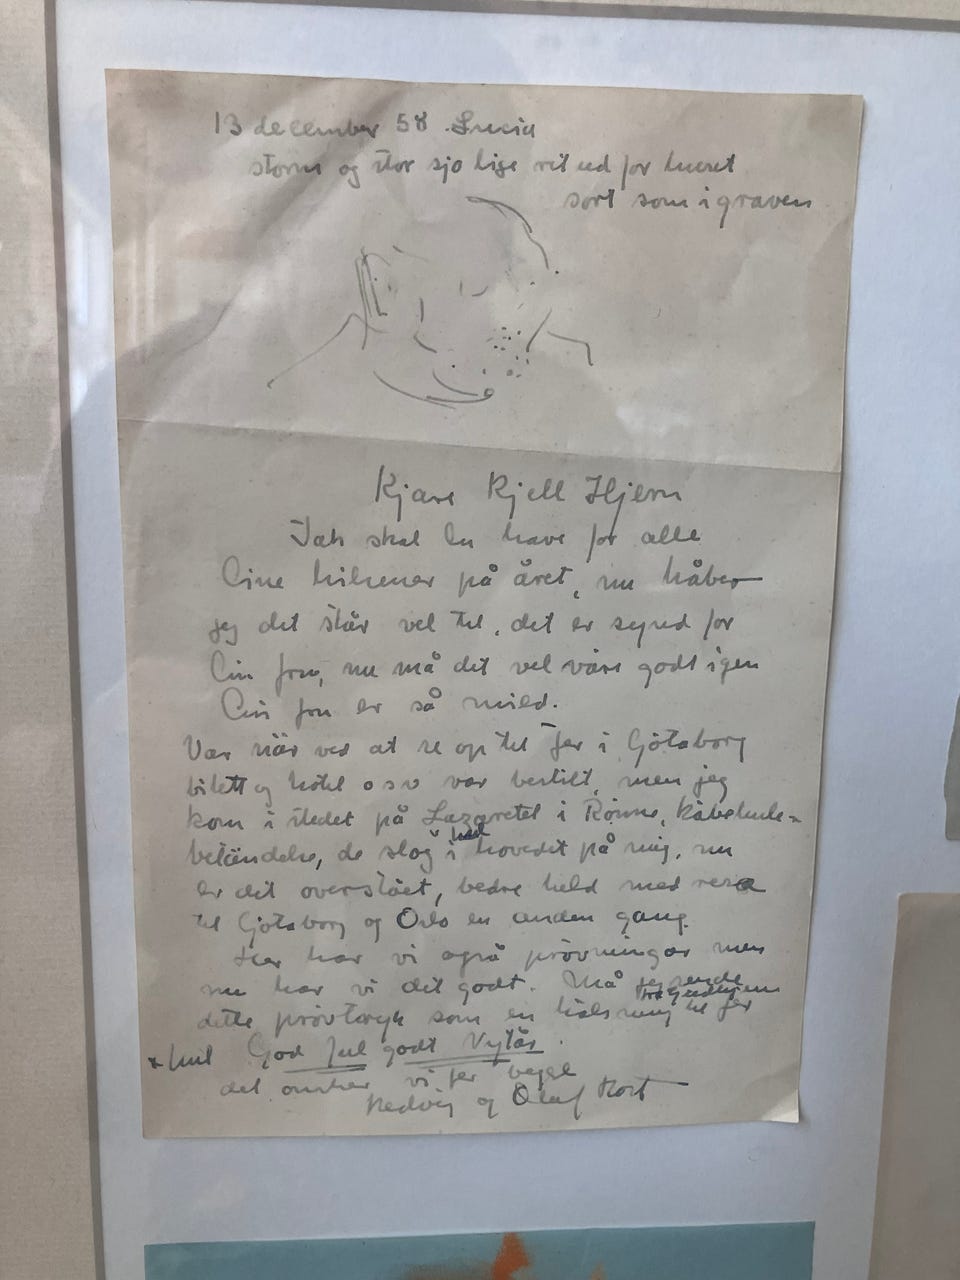 13 december 58 Lucia
storm og stor sjo lige ret ud for huset
sort som i graven
Kjäre Kjell Hjern
Tak skal Du have for alle
Dine hilsener på året, nu håber
jeg det står vel til, det er synd for
Din fru, nu må det vel väre godt igen
Din fru er så mild.
Var när ved at se op til Jer i Götaborg
bilett og hotel osv var bestilt, men jeg
kom i stedet på Lazarettet i Rönne,
betändelse, de slog i hovedet på mig, nu
er det overstået, bedre held med resa
til Götaborg og Oslo en anden gang.
Her har vi også prövningar men
nu har vi det godt. Må jeg sende
dette prövtryk som en hälsning til Jer
fra Gudhjem
God Jul godt Nytår.
det önsker vi Jer begge
Hedvig og Olaf Rost